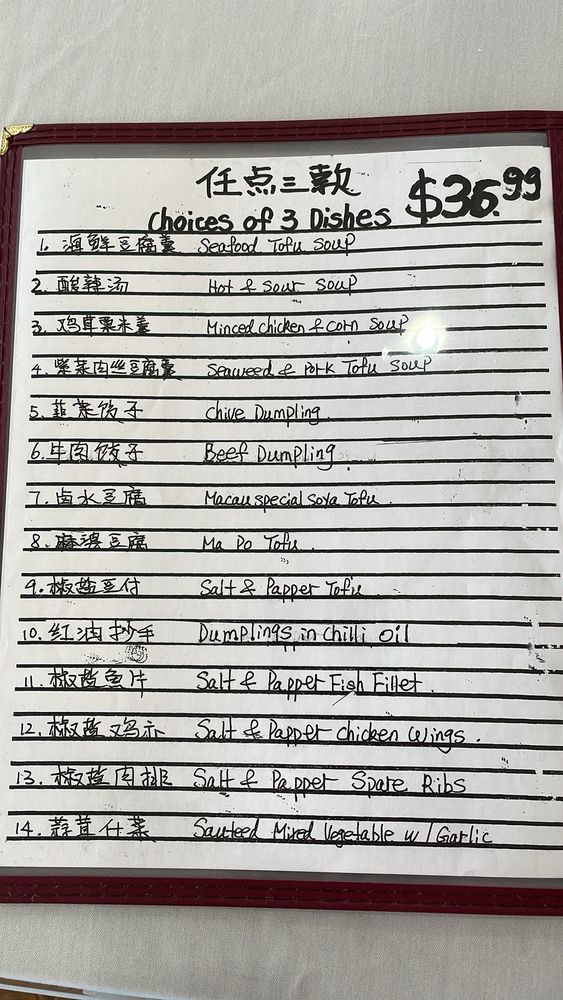 任点三款 $36.99
Choices of 3 Dishes
1. 海鲜豆腐羹 Seafood Tofu Soup
2. 酸辣汤 Hot & Sour Soup
3. 鸡茸粟米羹 Minced chicken & corn Soup
4. 紫菜肉丝豆腐羹 Seaweed & Pork Tofu Soup
5. 韭菜饺子 Chive Dumpling.
6. 牛肉饺子 Beef Dumpling
7. 卤水豆腐 Macau special Soya Tofu
8. 麻婆豆腐 Ma Po Tofu.
9. 椒盐豆付 Salt & Papper Tofu
10. 红油抄手 Dumplings in Chilli Oil
11. 椒盐魚片 Salt & Papper Fish Fillet.
12. 椒盐鸡亦 Salt & Papper chicken Wings.
13. 椒盐肉排 Salt & Papper Spare Ribs
14. 蒜茸什菜 Sauteed Mixed Vegetable w/Garlic